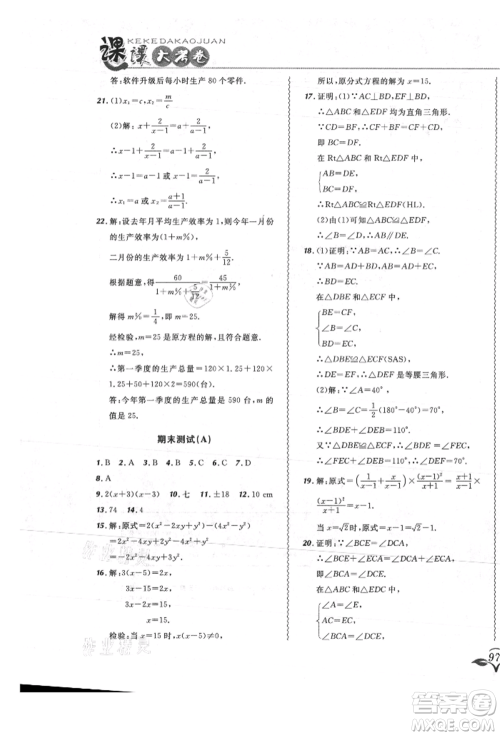 KEKEDAKAOJUAN
课课大考卷
答:软件升级后每小时生产 80 个零件.
21. (1)x₁=c,x₂=m/c
(2)解:x+2/(x-1)=a+2/(a-1),
∴x-1+2/(x-1)=a-1+2/(a-1),
∴x-1=a-1,x-1=2/(a-1),
∴x₁=a,x₂=(a+1)/(a-1).
22. 解:设去年月平均生产效率为 1,则今年一月份
的生产效率为(1+m%),
二月份的生产效率为 1+m%+5/12.
根据题意,得60/(1+m%+5/12)=45/(1+m%),
解得 m%=1/4,∴m=25.
经检验,m=25 是原方程的解,
∴m=25.
∴第一季度的生产总量为 120×1.25+120×
1.25+50+120×2=590(台).
答:今年第一季度的生产总量是 590 台,m 的
值是 25.
期末测试(A)
1. B 2. A 3. A 4. C 5. C 6. B 7. D 8. B
9. 2(x+3)(x-3) 10. 七 11. ±18 12. 10 cm
13. 74 14. 4
15. 解:原式=2(x²-y²)-4xy+y²
=2x²-2y²-4xy+y²
=2x²-4xy-y².
16. 解:3(x-5)=2x,
3x-15=2x,
3x-2x=15,
x=15.
检验:当 x=15 时,x(x-5)≠0,
所以,原分式方程的解为 x=15.
17. 证明:(1)∵AC⊥BD,EF⊥BD,
∴△ABC 和△EDF 都是直角三角形.
在 Rt△ABC 和 Rt△EDF 中,
AB=DE,
AC=EF,
∴Rt△ABC≌Rt△EDF(HL).
(2)∵△ABC≌△EDF,
∴∠B=∠D,
∴AB∥DE.
18. (1)证明:∵AB=AC,
∴∠B=∠C.
在△DBE 和△ECF 中,
BE=CF,
∠B=∠C,
∴△DBE≌△ECF(SAS).
∴DE=EF,
∴△DEF 是等腰三角形.
(2)解:∵∠A=40°,
∴∠B=∠C=1/2(180°-40°)=70°.
∴∠BDE+∠DEB=110°.
∵△DBE≌△ECF,
∴∠BDE=∠FEC,
∴∠FEC+∠DEB=110°,
∴∠DEF=70°.
当 x=√2时,原式=
20. 证明:∵∠BCE=∠DCA,
∴∠BCE+∠ACE=∠DCA+∠ACE,
即∠BCA=∠DCE.
在△BCA 和△DCE 中,
∠A=∠E,
∠BCA=∠DCE,
97
答案圈
MXQE.COM